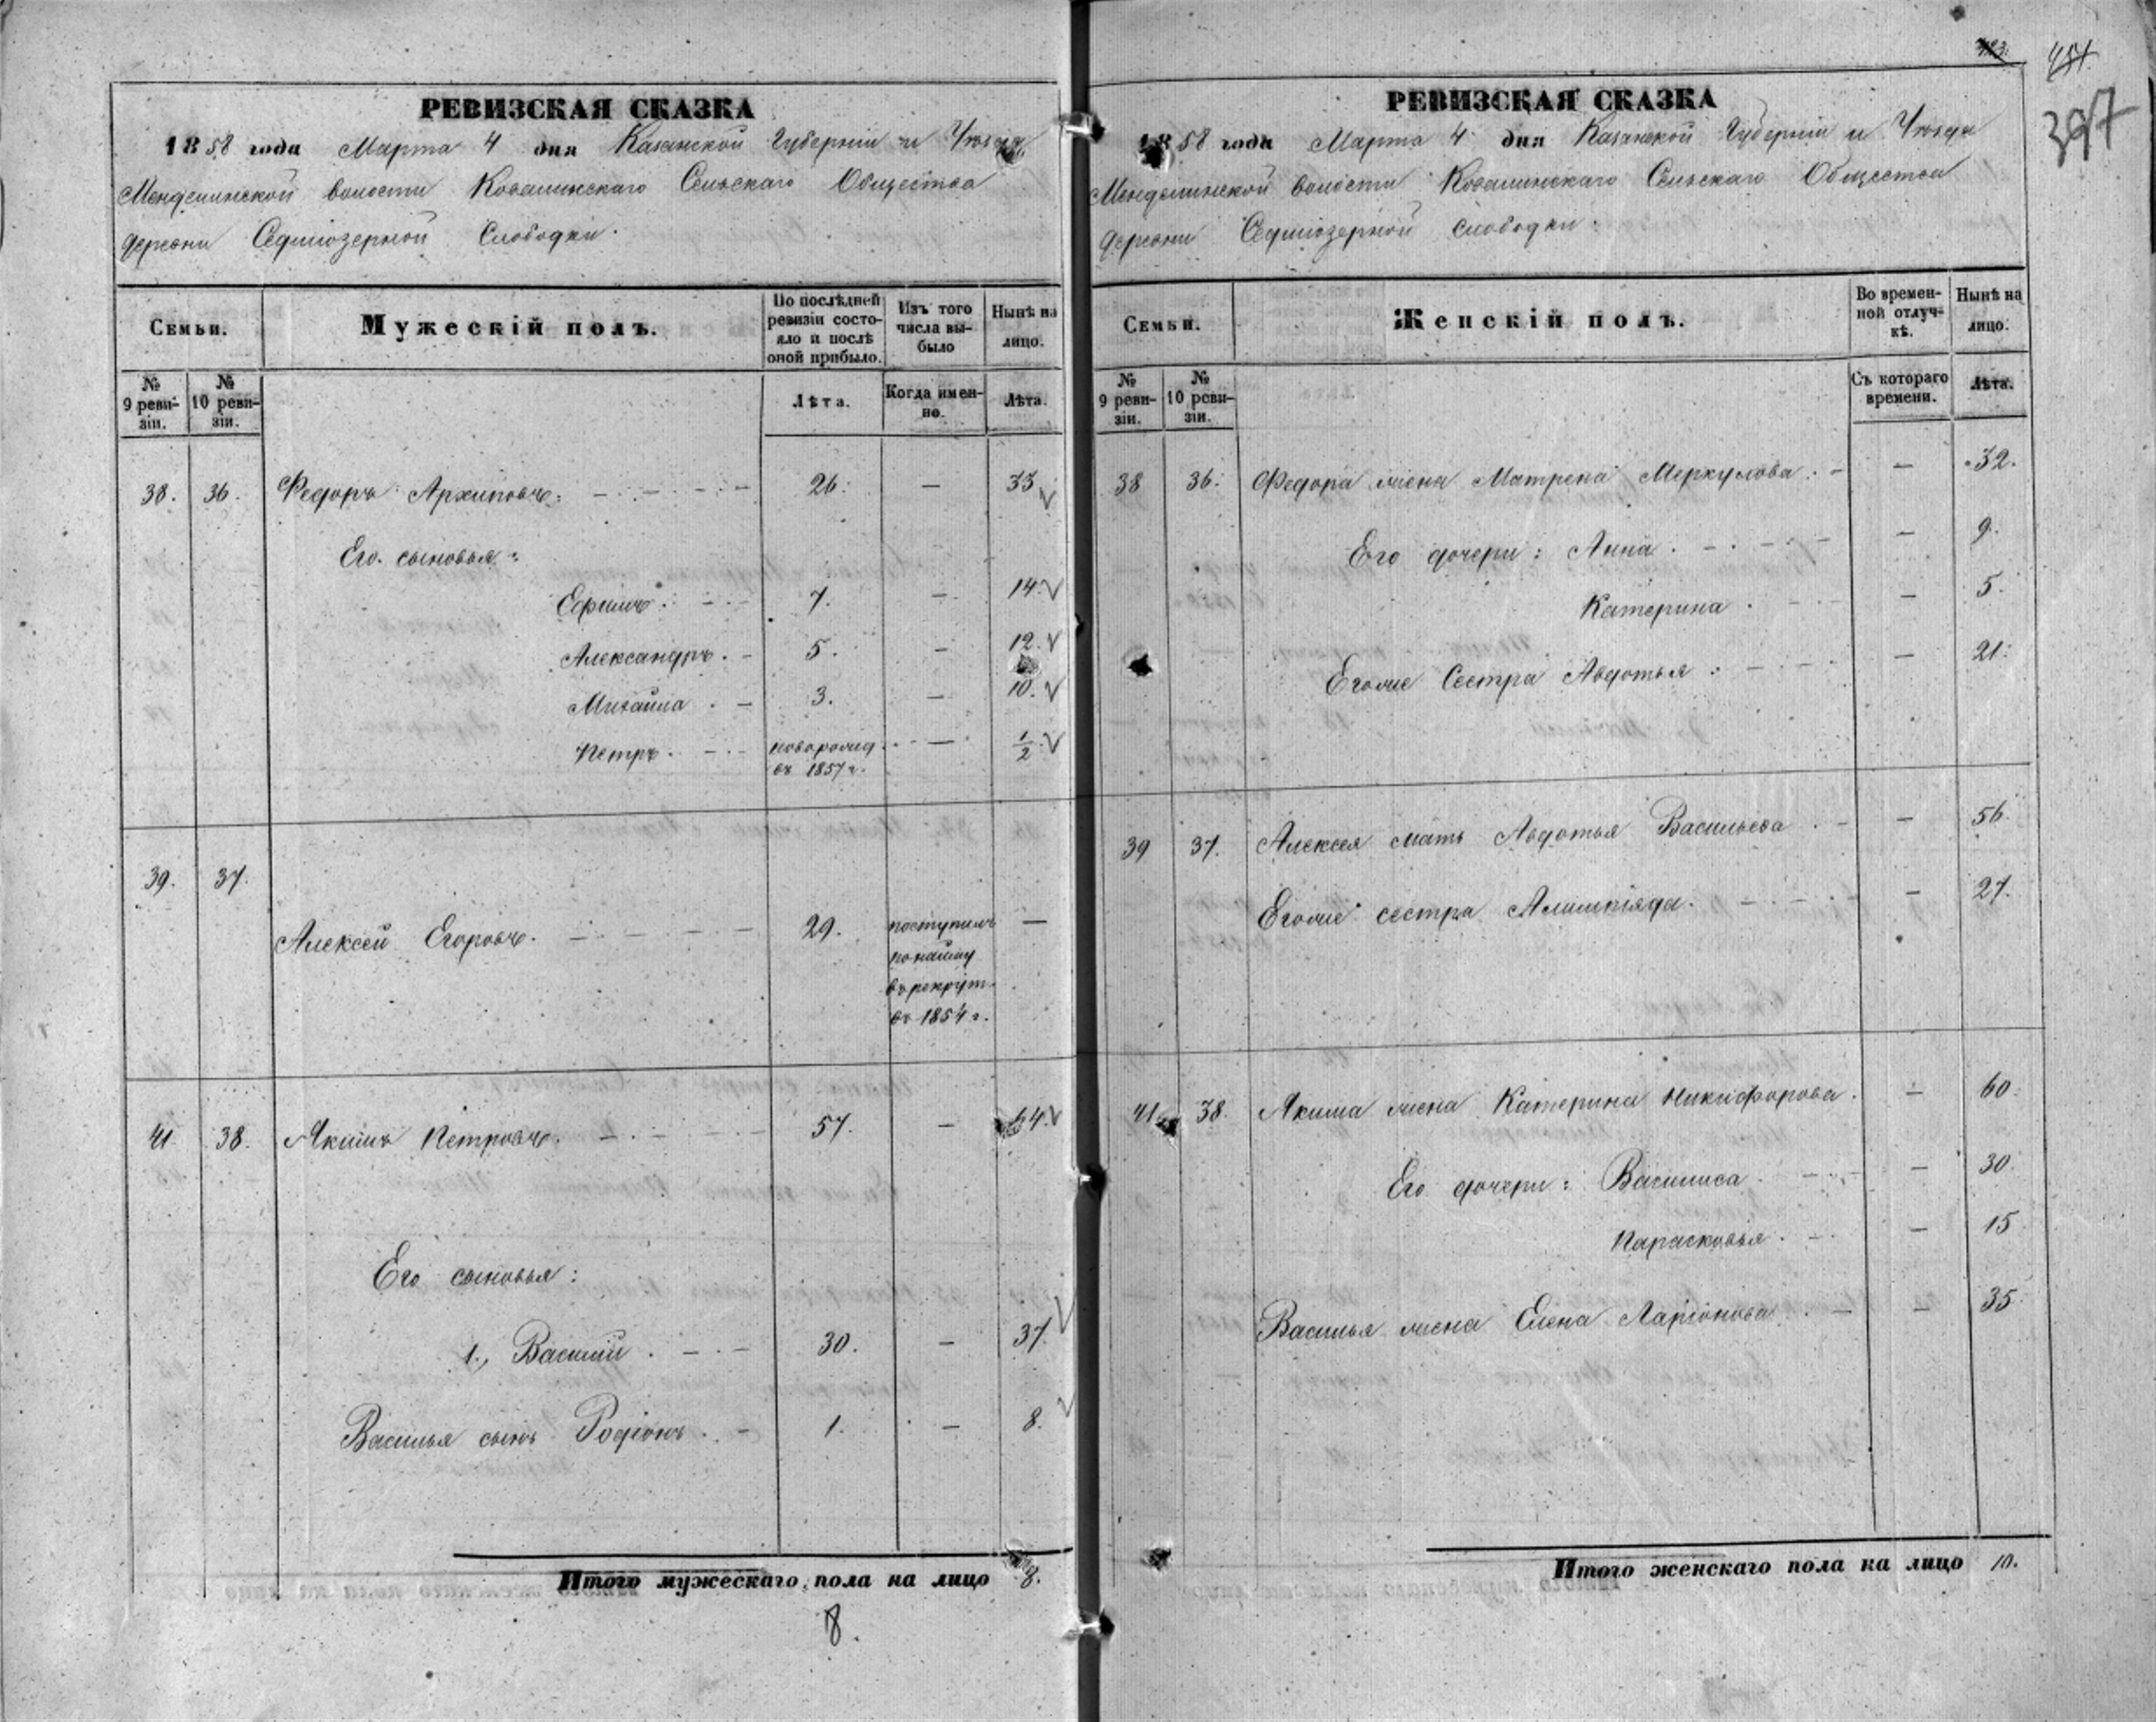 РЕВИЗСКАЯ СКАЗКА
1858 года Марта 4 дня Казанской Губернiи и Уѣзда
Менделинской волости Ковалинскаго Сельскаго Общества
деревни Седмiозерной Слободки.
Семьи.
Мужескій полъ.
По послѣдней ревизіи состояло и послѣ оной прибыло.
Изъ того числа выбыло
Нынѣ на лицо.
№ 9 ревизіи.
№ 10 ревизіи.
Лѣта.
Когда именно.
Лѣта.
38. 36. Федоръ Архиповъ. 26. — 33
Его сыновья:
Ефимъ. 7. — 14.
Александръ. 5. — 12.
Михайла. 3. — 10.
Петръ. новорожд. въ 1857 г. — 1/2
39. 37.
Алексей Егоровъ. 29. поступилъ —
по найму
въ рекрут.
въ 1854 г.
41 38. Акимъ Петровъ. 57. — 64.
Его сыновья:
1., Василий. 30. — 37.
Василья сынъ Родiонъ. 1. — 8.
Итого мужескаго пола на лицо 8.
8.
397
РЕВИЗСКАЯ СКАЗКА
1858 года Марта 4 дня Казанской Губернiи и Уѣзда
Менделинской волости Ковалинскаго Сельскаго Общества
деревни Седмiозерной слободки.
Семьи.
Женскій полъ.
Во временной отлучкѣ.
Нынѣ на лицо.
№ 9 ревизіи.
№ 10 ревизіи.
Съ котораго времени.
Лѣта.
38 36. Федора жена Матрена Меркулова. — 32.
Его дочери: Анна. — 9.
Катерина. — 5.
Егоже Сестра Авдотья: — 21.
39 37. Алексея мать Авдотья Васильева. — 56.
Егоже сестра — 27.
41 38. Акима жена Катерина Никифорова. — 60.
Его дочери: Василиса. — 30.
Парасковья. — 15
Василья жена Елена Ларiонова. — 35.
Итого женскаго пола на лицо 10.